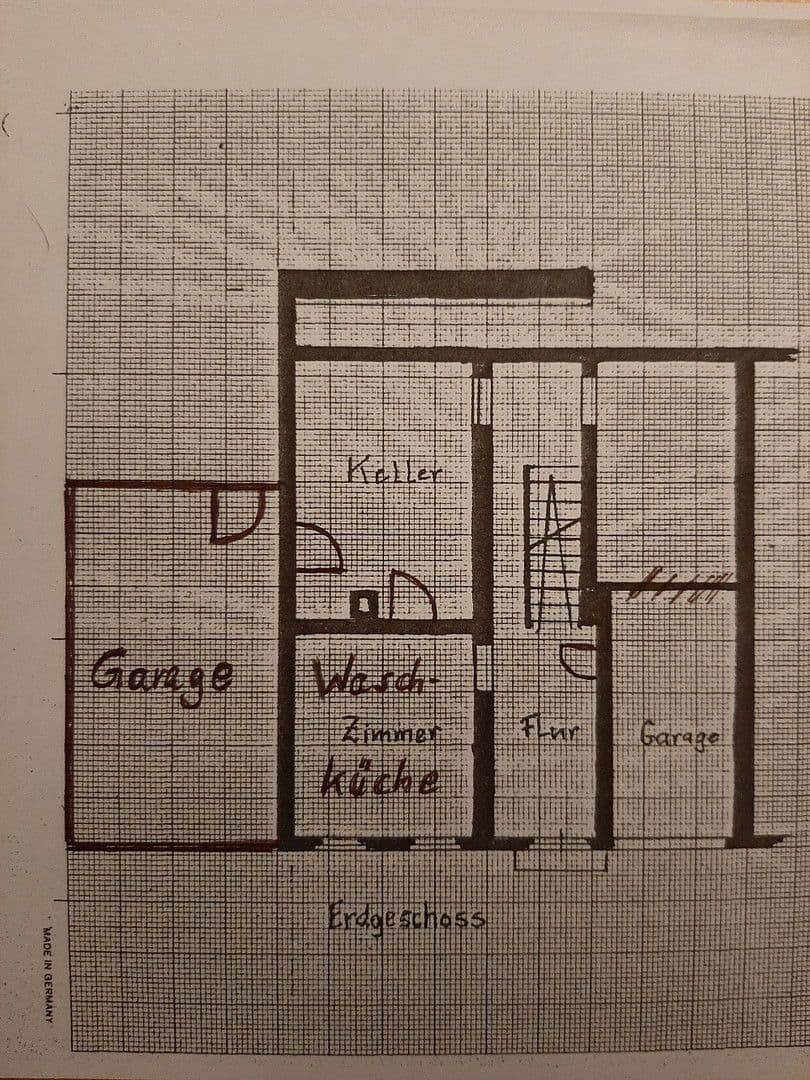 Keller
Garage
Wasch-
Zimmer
küche
Flur
Garage
Erdgeschoss
MADE IN GERMANY